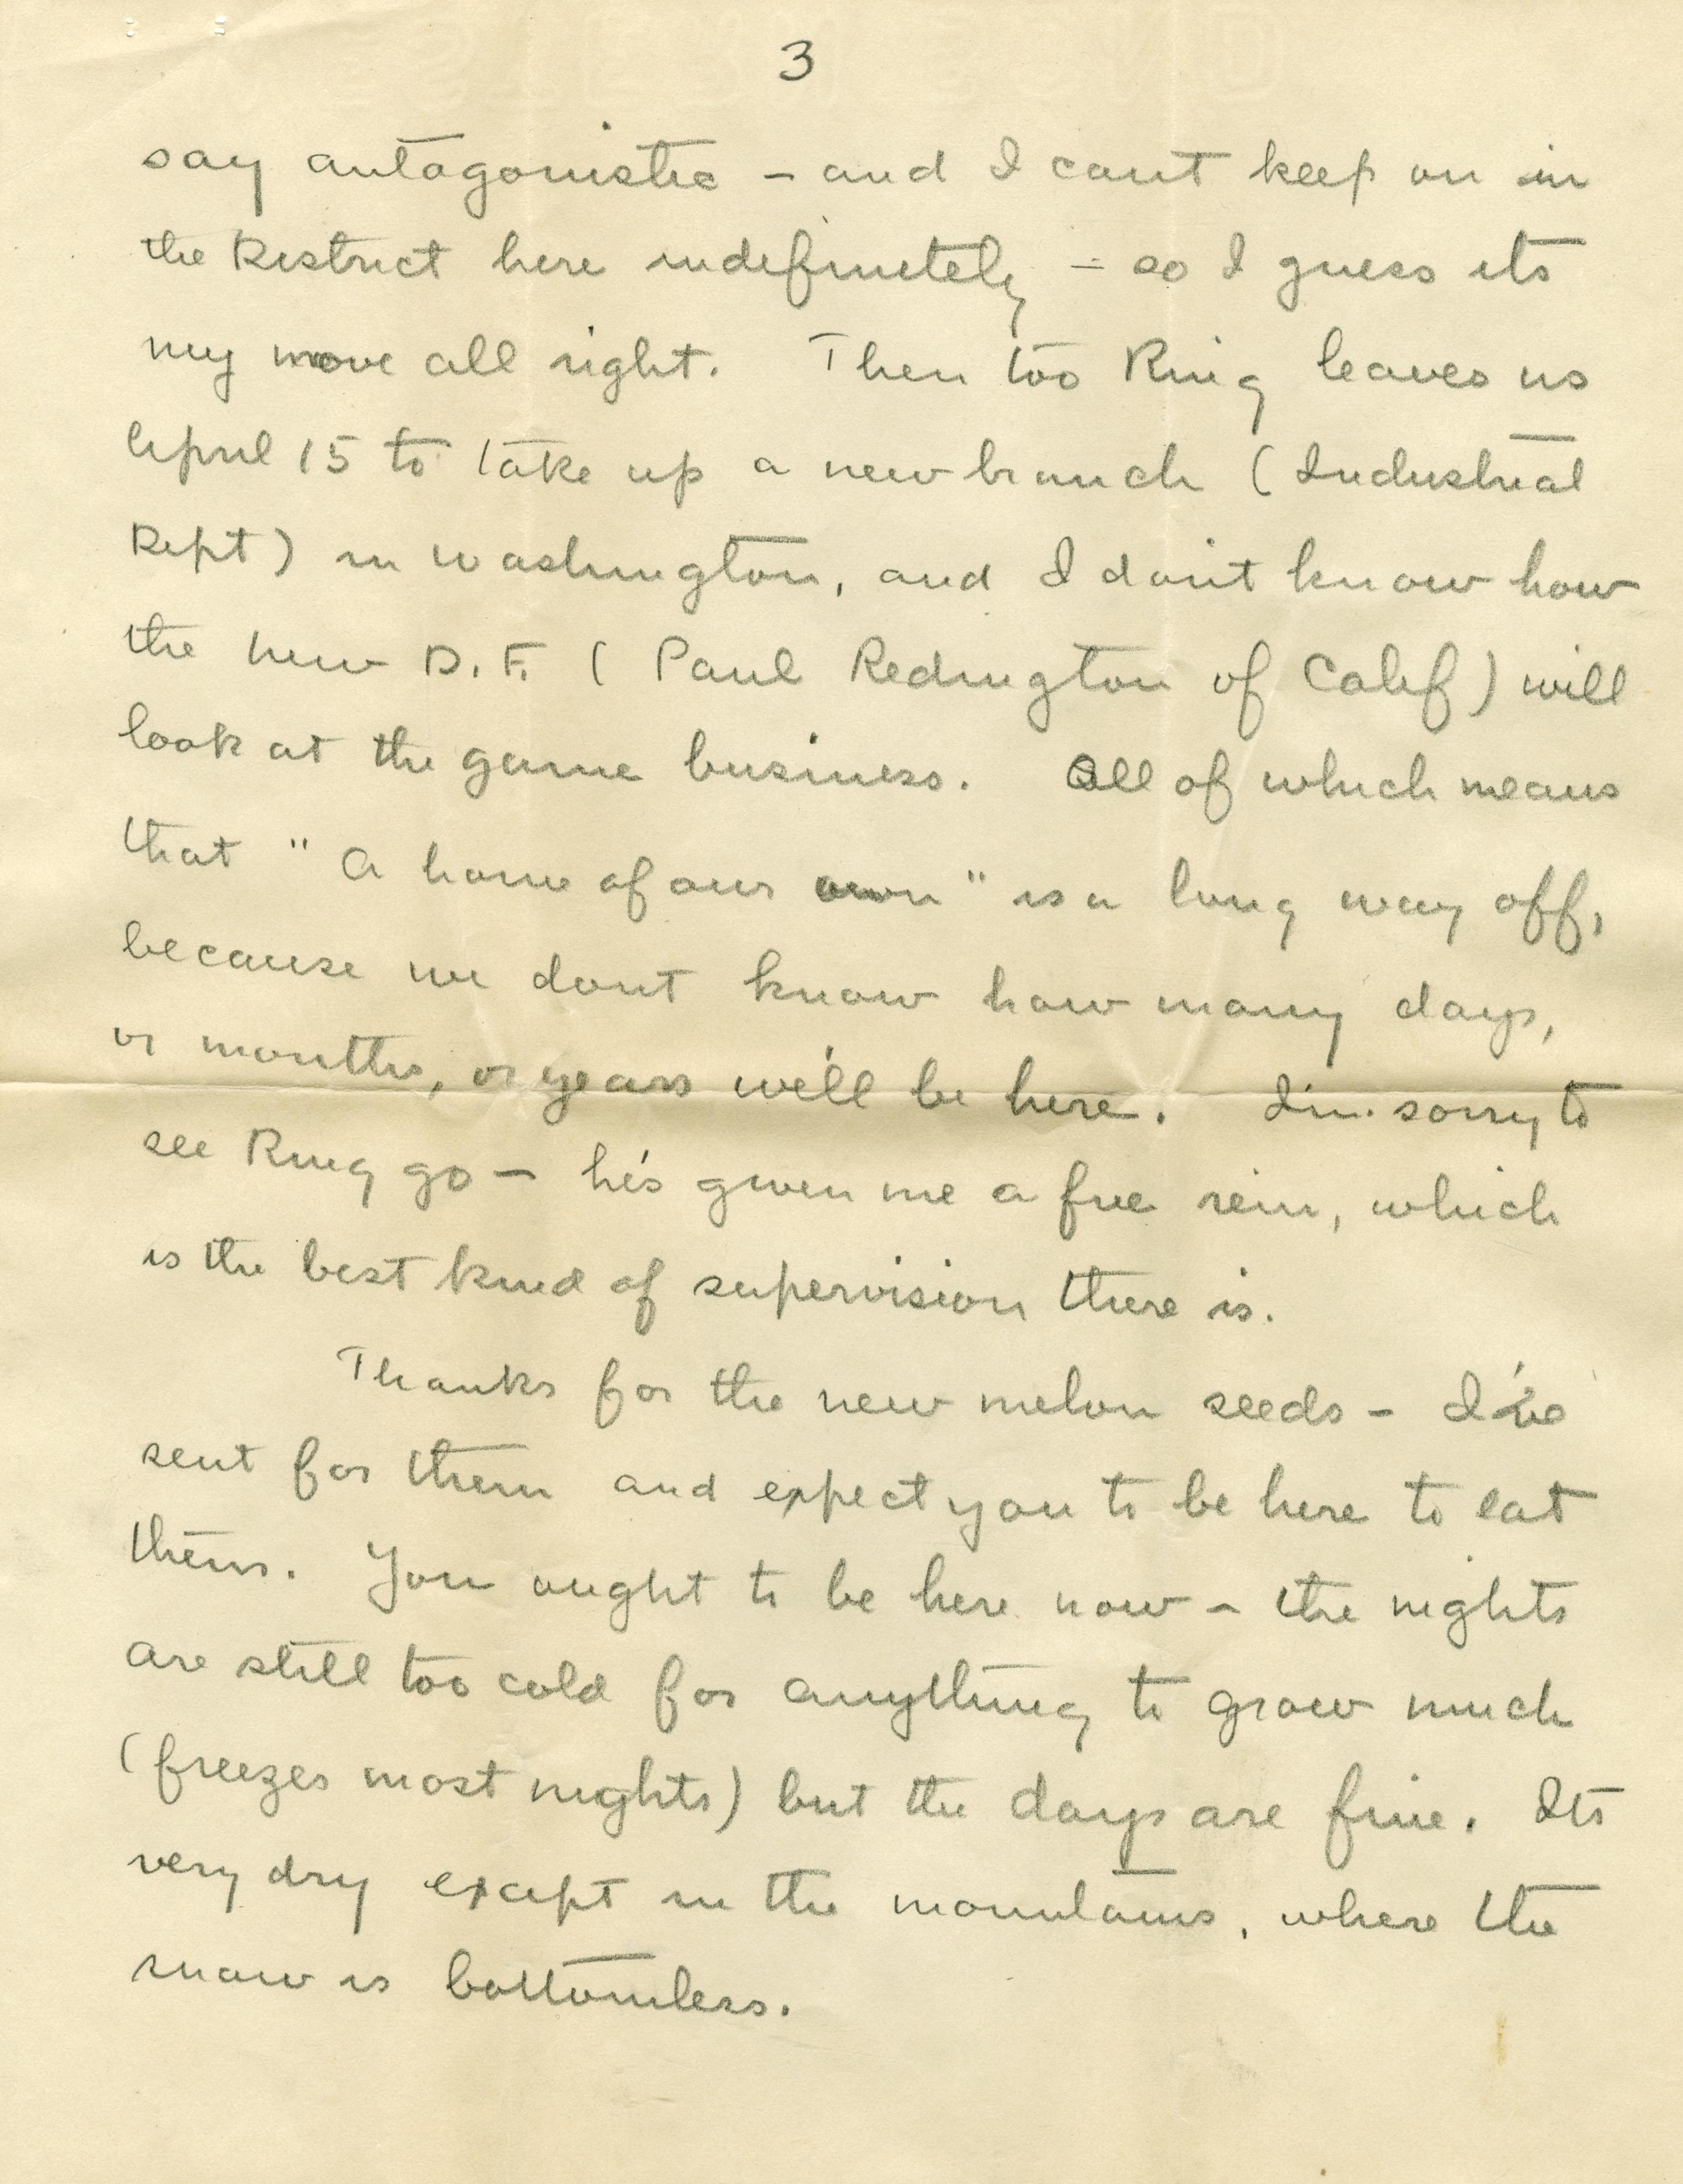 3
say antagonistic – and I cant keep on in
the District here indefinitely – so I guess its
my move all right. Then too Ring leaves us
April 15 to take up a new branch (Industrial
Dept) in Washington, and I don't know how
the new D.F. (Paul Redington of Calif) will
look at the game business. All of which means
that "A home of our own" is a long way off,
because we dont know how many days,
or months, or years we'll be here. I'm sorry to
see Ring go – he's given me a free rein, which
is the best kind of supervision there is.
Thanks for the new melon seeds – I've
sent for them and expect you to be here to eat
them. You ought to be here now – the nights
are still too cold for anything to grow much
(freezes most nights) but the days are fine. Its
very dry except in the mountains, where the
snow is bottomless.